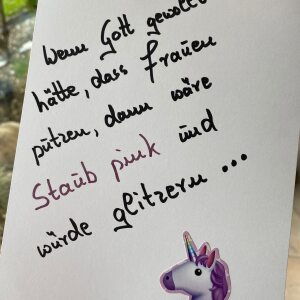 Wenn Gott gewollt
hätte, dass Frauen
putzen, dann wäre
Staub pink und
würde glitzern ...